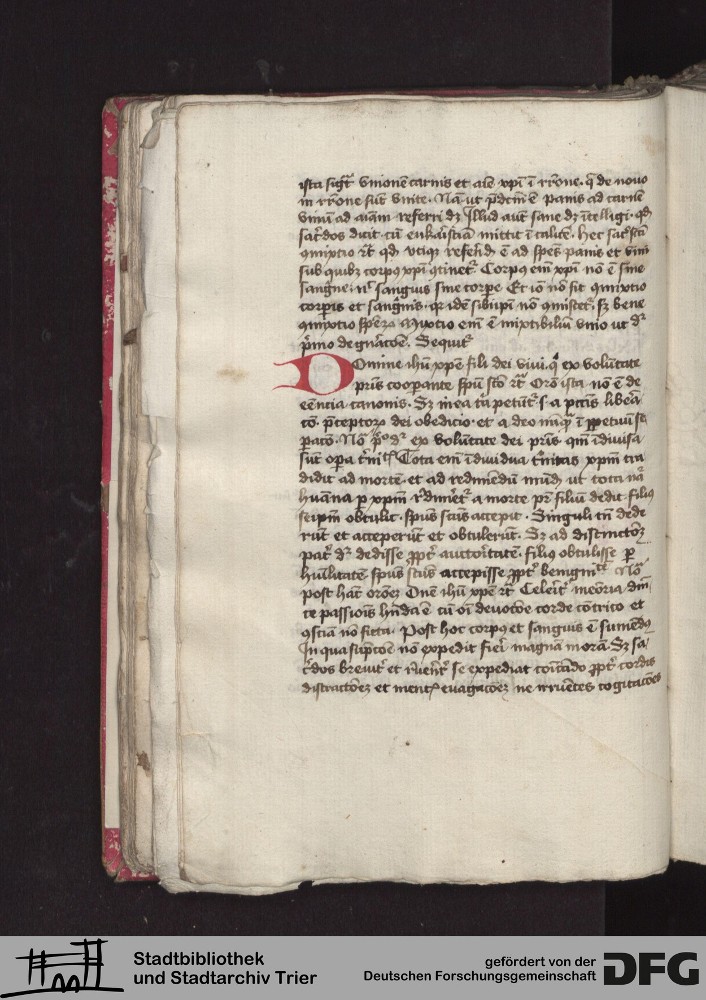 ista sigt̄ vnionē carnis et aīe xp̄i ī rr̄one. q̄ de nouo
in rr̄one sūt vnite. Nā ut p̄dcm̄ ē panis ad carnē
vinū ad aīam referri dꝫ Illud aūt sane dꝫ ītelligi. qd̓
sac̓dos dicit cū eukaristiā mittit ī calicē. hec sac̓scā
ꝯmixtio r̄t qd̓ vtiqꝫ referēd̓ ē ad sp̄es panis et vini
sub quibꝫ corpꝰ xp̄i ꝯtinet̓. Corpꝰ eīm xp̄i nō ē sine
sangne. nc̓ sanguis sine corpe Et iō nō fit ꝯmixtio
corpis et sangnis. qr idē sibiip̄i nō ꝯmiscet̓. sꝫ bene
ꝯmixtio sp̄erꝝ Mixtio eīm ē mixtibiliū vnio ut dr̓
p̓mo de gn̄acōe. Sequit̓
Domine ih̄u xp̄e fili dei viui. q̓ ex volūtate
pr̄is cooperante sp̄u sc̄o r̄t Orō ista nō ē de
eēncia canonis. Sꝫ ī ea petūt̓ .s. a pccīs libea
cō. p̄ceptorꝝ dei obedicio. et a deo ī ꝑpetuū se
pacō. Nō dr̓ ex volūtate dei pr̄is qm̄ īdiuisa
sūt opa Tota eīm īdiuidua t̓nitas xp̄m tra
didit ad mortē. et ad redimēdū mūdū ut tota nā
huāna ꝑ xp̄m a morte pr̄ filiū dedit. filiꝰ
seip̄m obtulit. sp̄us sc̄us accepit. Singuli tn̄ dede
rūt et acceperūt et obtulerūt. Sꝫ ad distinctōeꝫ
pat̓ dr̓ dedisse ꝓpt̓ auctoritatē. filiꝰ obtulisse ꝑ
hūilitatē sp̄us sc̄us accepisse ꝓpt̓ benignitatē Nō
post hāc orōeꝫ Dn̄e ih̄u xp̄e r̄t Celerit̓ meōria dn̄i
ce passiōis hn̄da ē cū oī deuotōe corde cōtrito et
ꝯsciā nō ficta. Post hoc corpꝰ et sanguis ē sumēdꝰ
In qua sūptōe nō expedit fieri magnā morā. Sꝫ sa
c̓dos breuit̓ et se expediat ꝓpt̓ cordis
distractōeꝫ et mentꝭ euagacōeꝫ ne irruētes cogitacōes
Stadtbibliothek
und Stadtarchiv Trier
gefördert von der
Deutschen Forschungsgemeinschaft
DFG